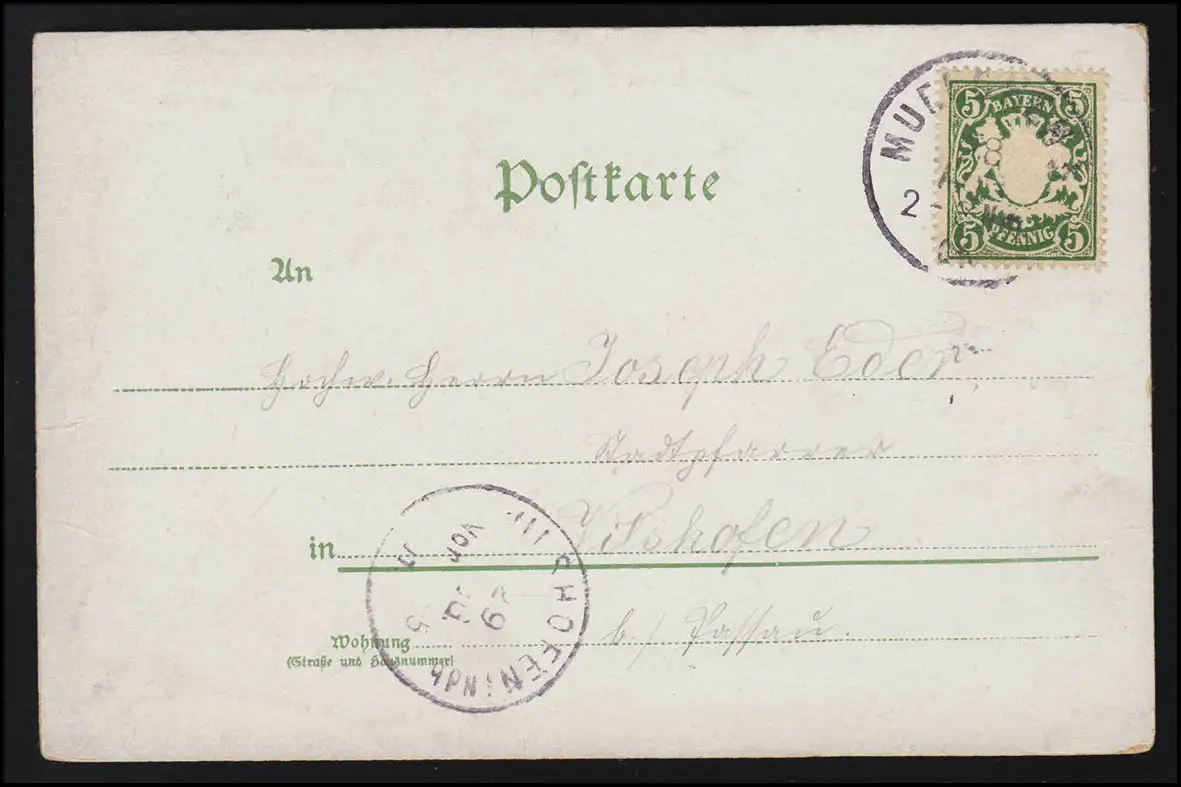 5 BAYERN 5
5 PFENNIG 5
8
2
Postkarte
An
Hochw. Herrn Joseph Eder,
Stadtpfarrer
in Vilshofen
Wohnung
(Straße und Hausnummer)
b/ Passau.
SHOFEN Ndb
Vor
5